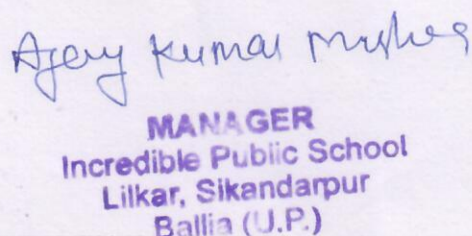 Ajay Kumar Mishra
MANAGER
Incredible Public School
Lilkar, Sikandarpur
Ballia (U.P.)